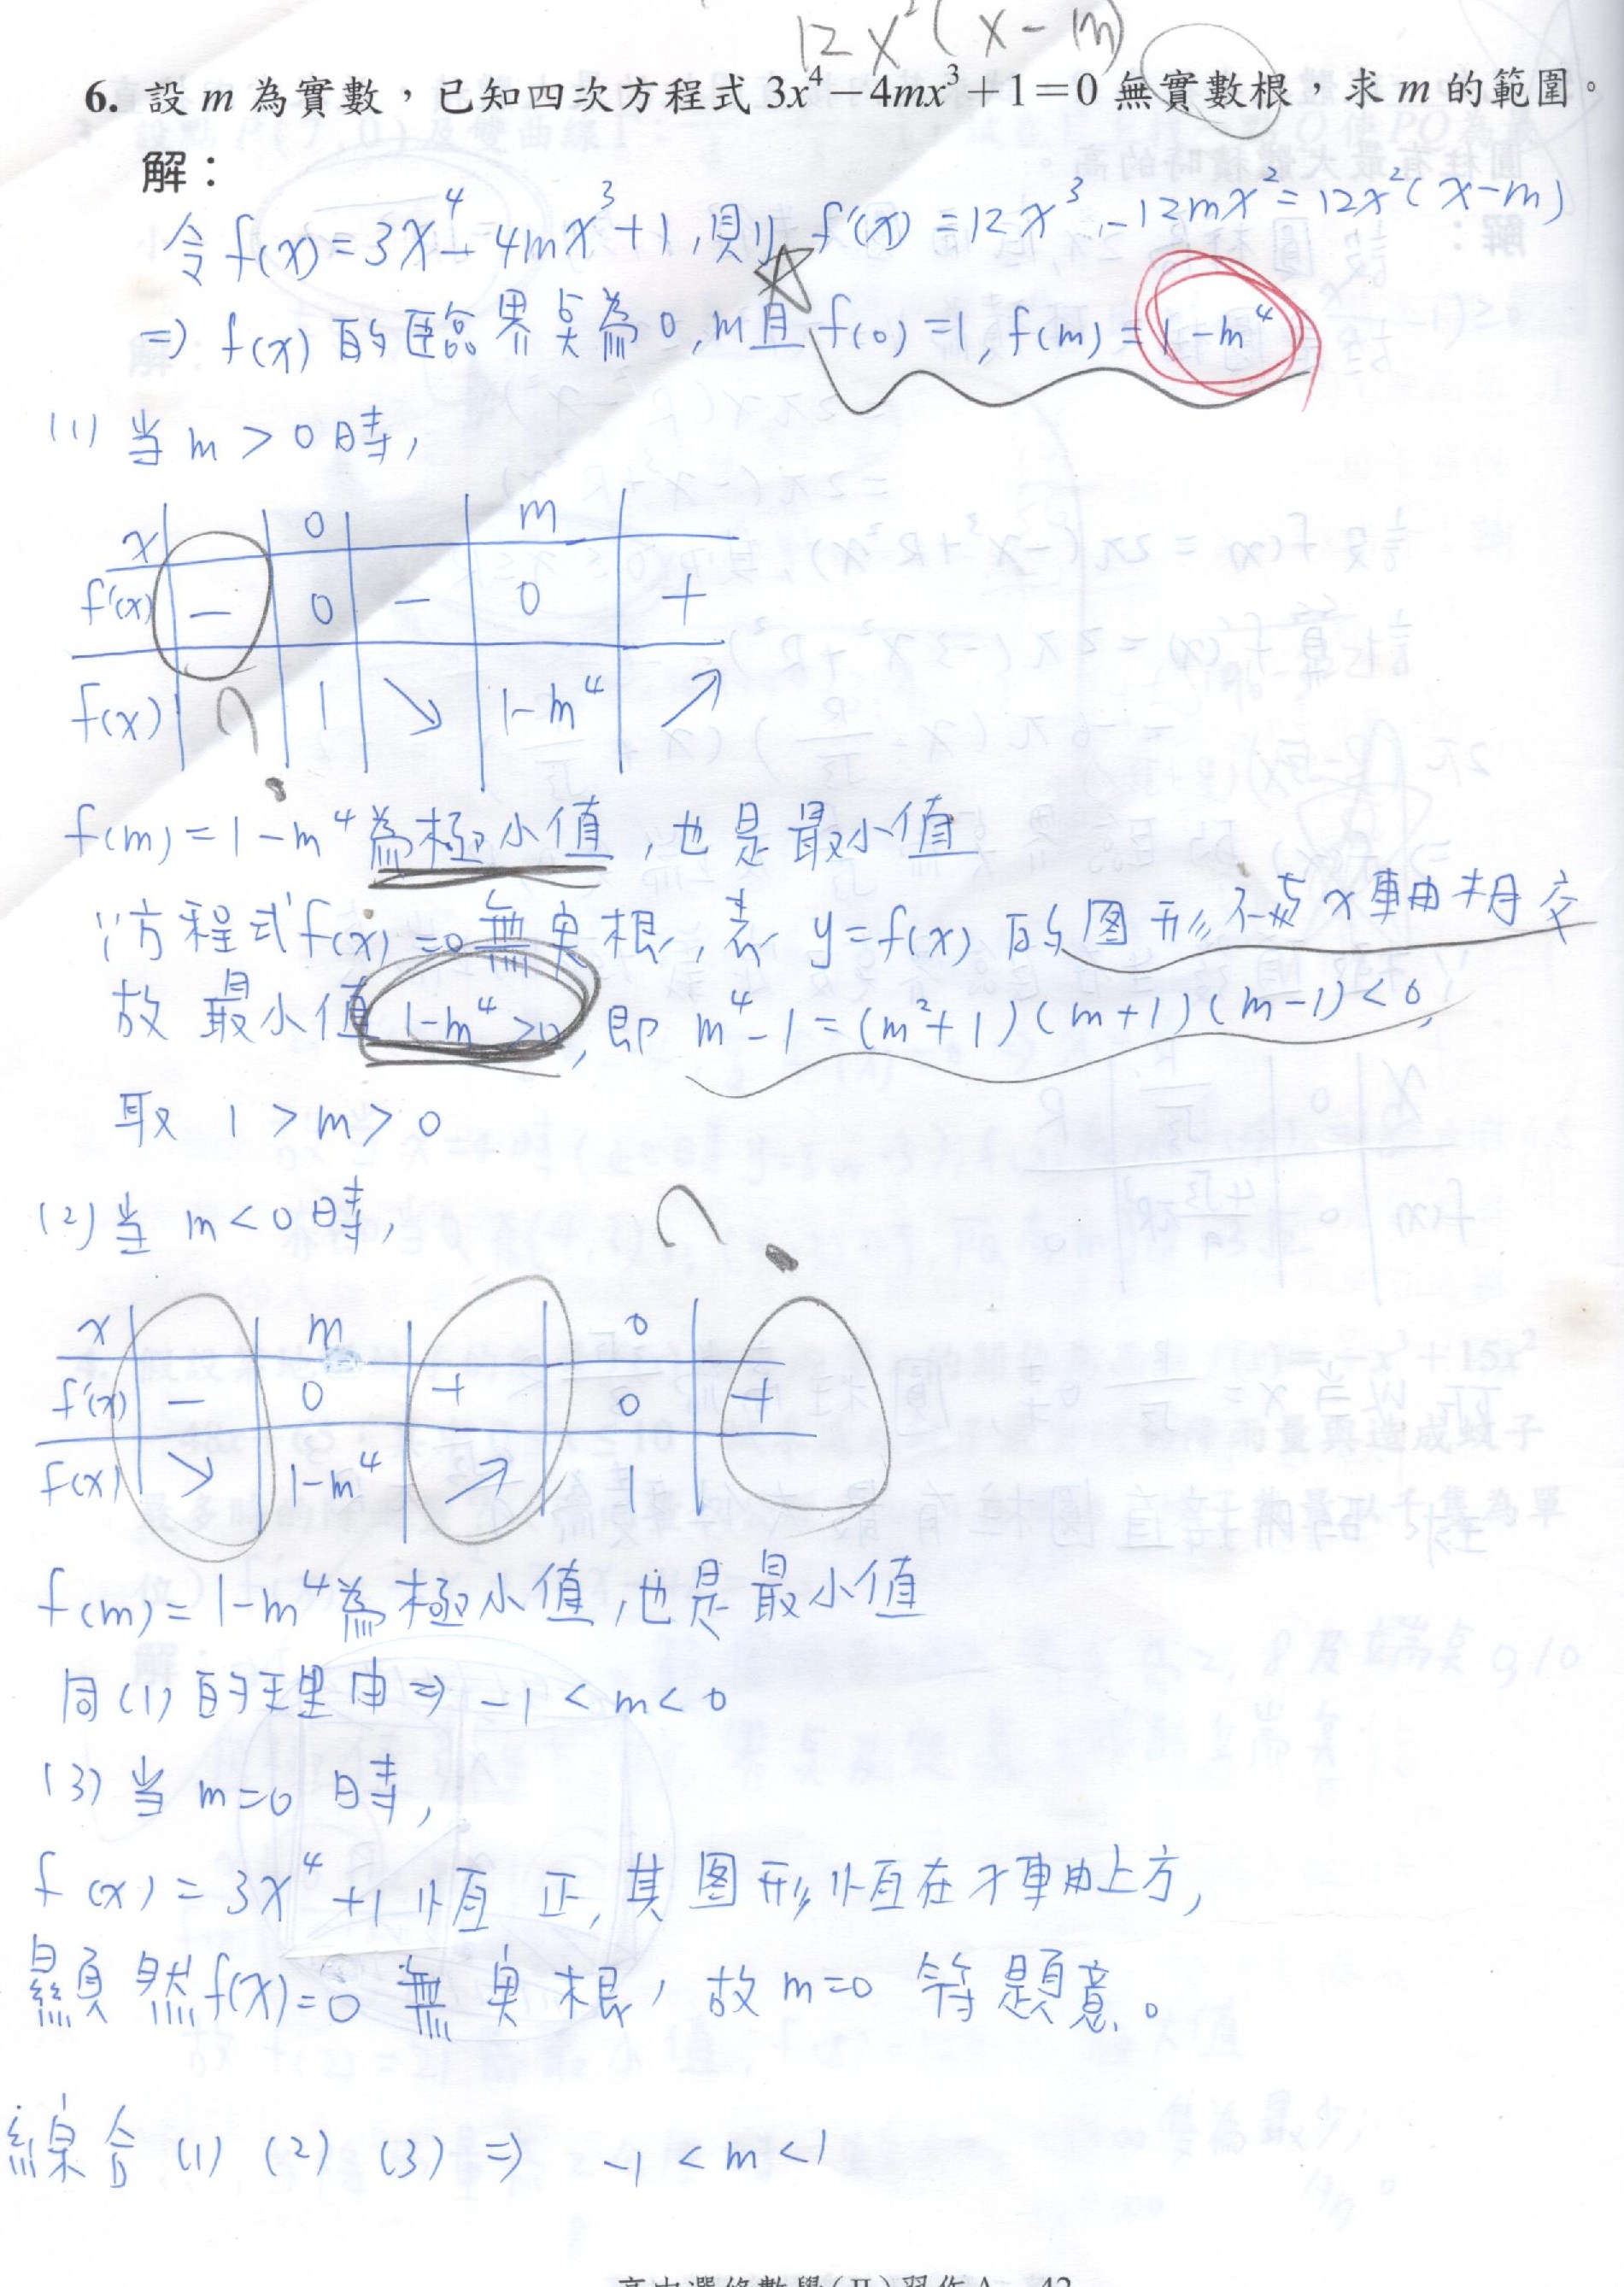 12x²(x-m)
6. 設 m 為實數，已知四次方程式 3x⁴－4mx³＋1＝0 無實數根，求 m 的範圍。
解：
令 f(x) = 3x⁴-4mx³+1，則 f'(x) = 12x³-12mx² = 12x²(x-m)
⇒ f(x) 的臨界点為 0, m 且 f(0) = 1, f(m) = 1-m⁴
(1) 当 m > 0 時，
x 0 m
f'(x) － 0 － 0 ＋
f(x) ? 1 ↘ 1-m⁴ ↗
f(m) = 1-m⁴ 為極小值，也是最小值
∵方程式 f(x)=0 無实根，表 y=f(x) 的图形不与 x 軸相交
故 最小值 1-m⁴ >0, 即 m⁴-1 = (m²+1)(m+1)(m-1) < 0,
取 1 > m > 0
(2) 当 m < 0 時， ?
x m 0
f'(x) － 0 ＋ 0 ＋
f(x) ↘ 1-m⁴ ↗ 1
f(m) = 1-m⁴ 為極小值，也是最小值
同(1)的理由 ⇒ -1 < m < 0
(3) 当 m=0 時，
f(x) = 3x⁴+1 恆正，其图形恆在 x 軸上方，
顯然 f(x)=0 無实根，故 m=0 符題意。
綜合 (1) (2) (3) ⇒ -1 < m < 1